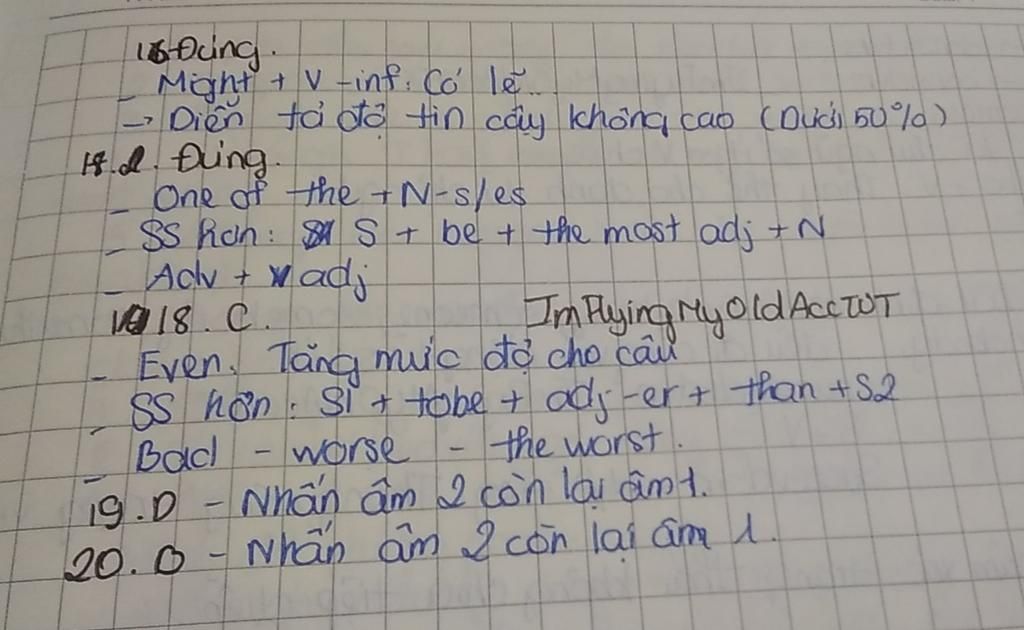 16 Đúng.
- Might + V-inf: Có lẽ.
→ Diễn tả độ tin cậy không cao (Dưới 50%)
17. Đúng.
- One of the + N-s/es
- SS hơn: S + be + the most adj + N
- Adv + adj
18. C. ImFlyingMyOldAccTOT
- Even: Tăng mức độ cho câu
- SS hơn: S1 + tobe + adj-er + than + S2
- Bad - worse - the worst.
19. D - Nhấn âm 2 còn lại âm 1.
20. D - Nhấn âm 2 còn lại âm 1.